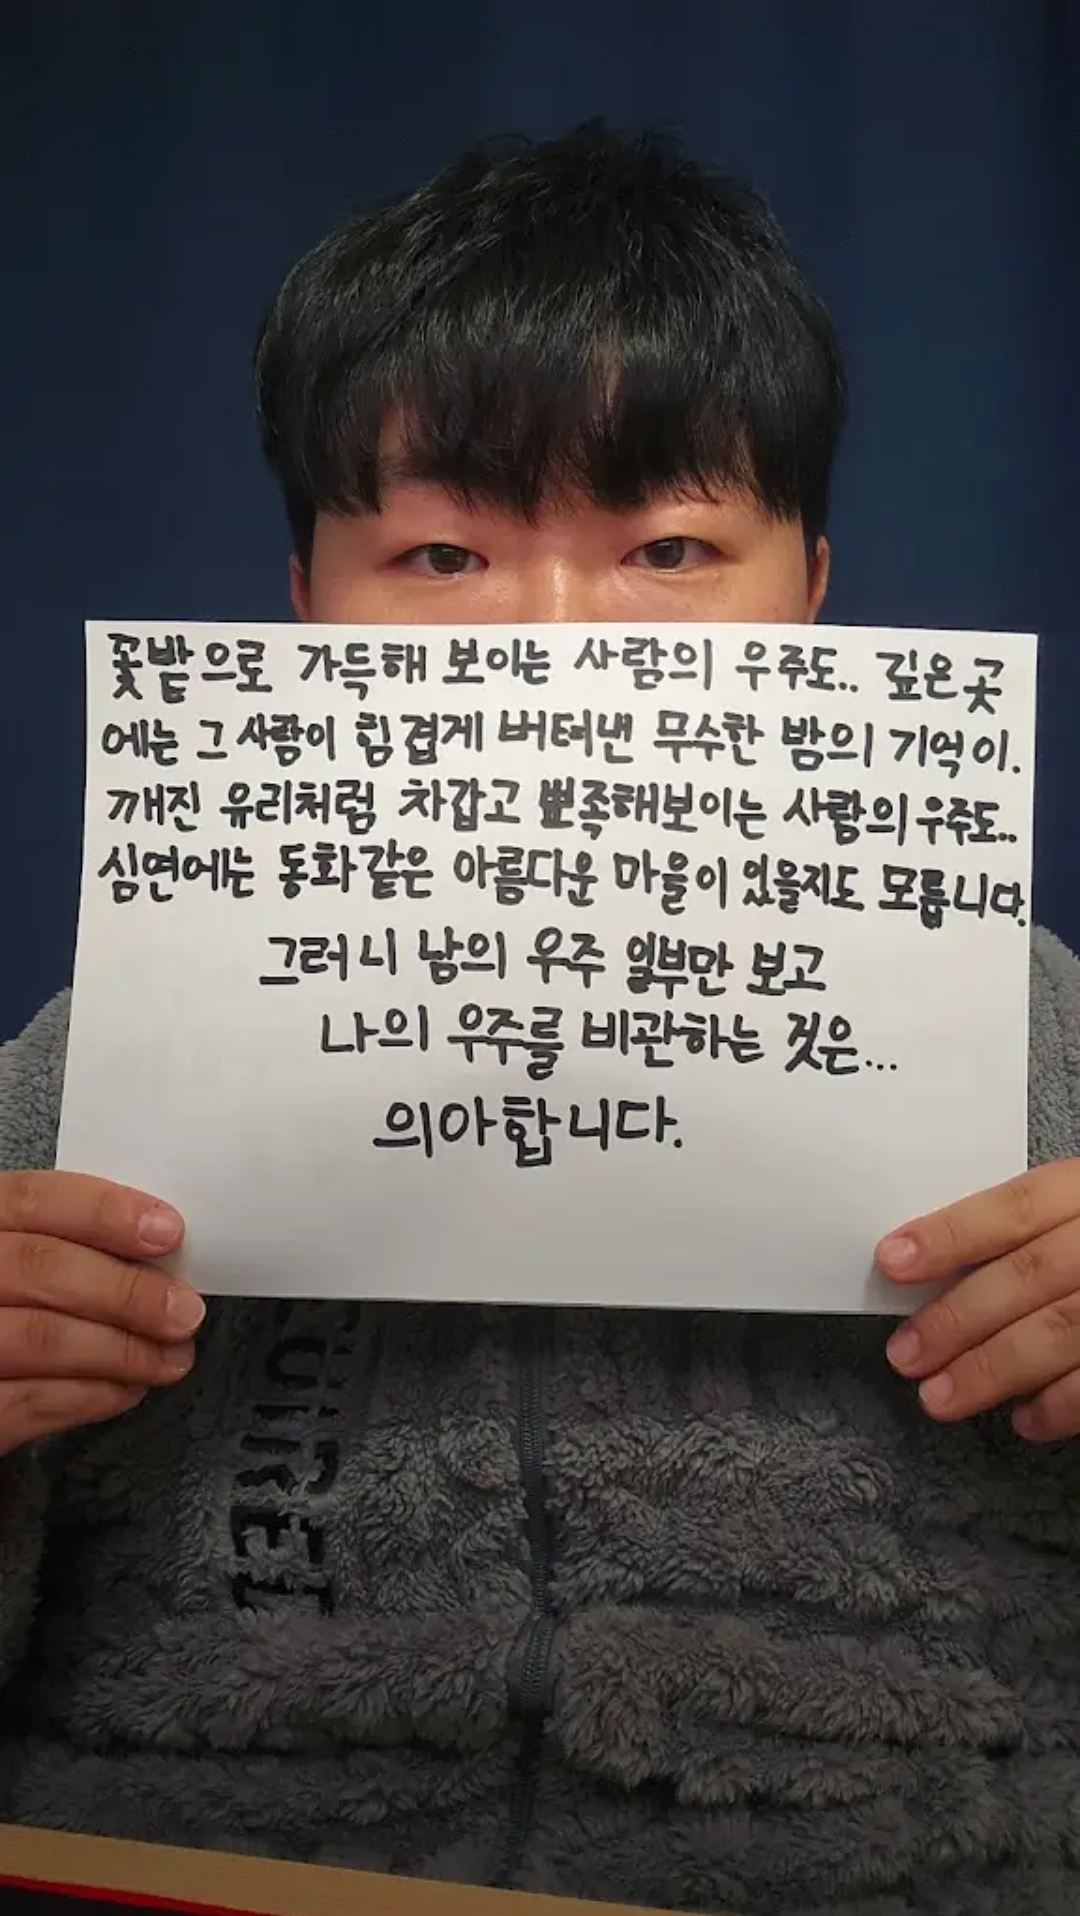 꽃밭으로 가득해 보이는 사람의 우주도.. 깊은 곳
에는 그 사람이 힘겹게 버텨낸 무수한 밤의 기억이.
깨진 유리처럼 차갑고 뾰족해보이는 사람의 우주도..
심연에는 동화같은 아름다운 마을이 있을지도 모릅니다.
그러니 남의 우주 일부만 보고
나의 우주를 비관하는 것은...
의아합니다.